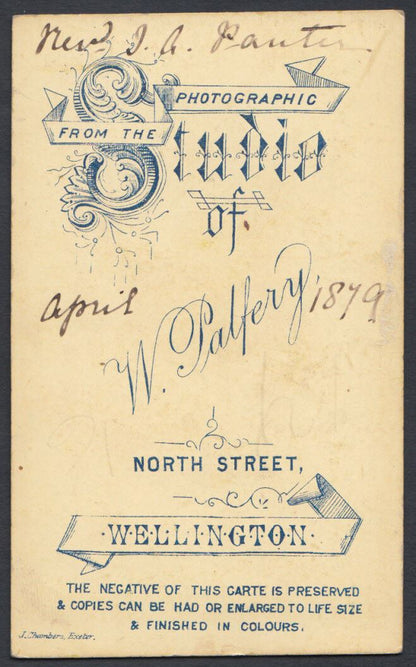 Revd J. A. Panter
PHOTOGRAPHIC
FROM THE
Studio
of
W. Palfery,
April 1879
NORTH STREET,
·WELLINGTON·
THE NEGATIVE OF THIS CARTE IS PRESERVED
& COPIES CAN BE HAD OR ENLARGED TO LIFE SIZE
& FINISHED IN COLOURS.
J. Chambers, Exeter.